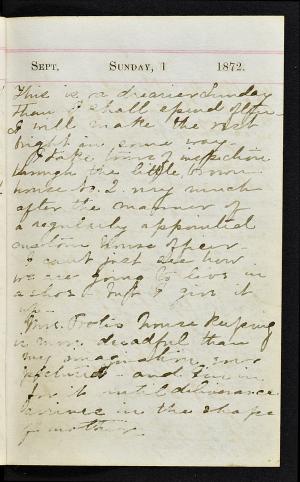 SEPT. SUNDAY, 1 1872.
This is a drearier Sunday
than I shall spend often
I will make the rest
bright in some way
I take tours of inspection
through the little brown
house No. 2 very much
after the manner of
a regularly appointed
custom house officer.
I can't just see how
we are going to live in
a shoe but I give it
up.
Mrs. house keeping
is more dreadful than
my imagination ever
pictured and I'm in
for it until deliverance
arrives in the shape
of mother.